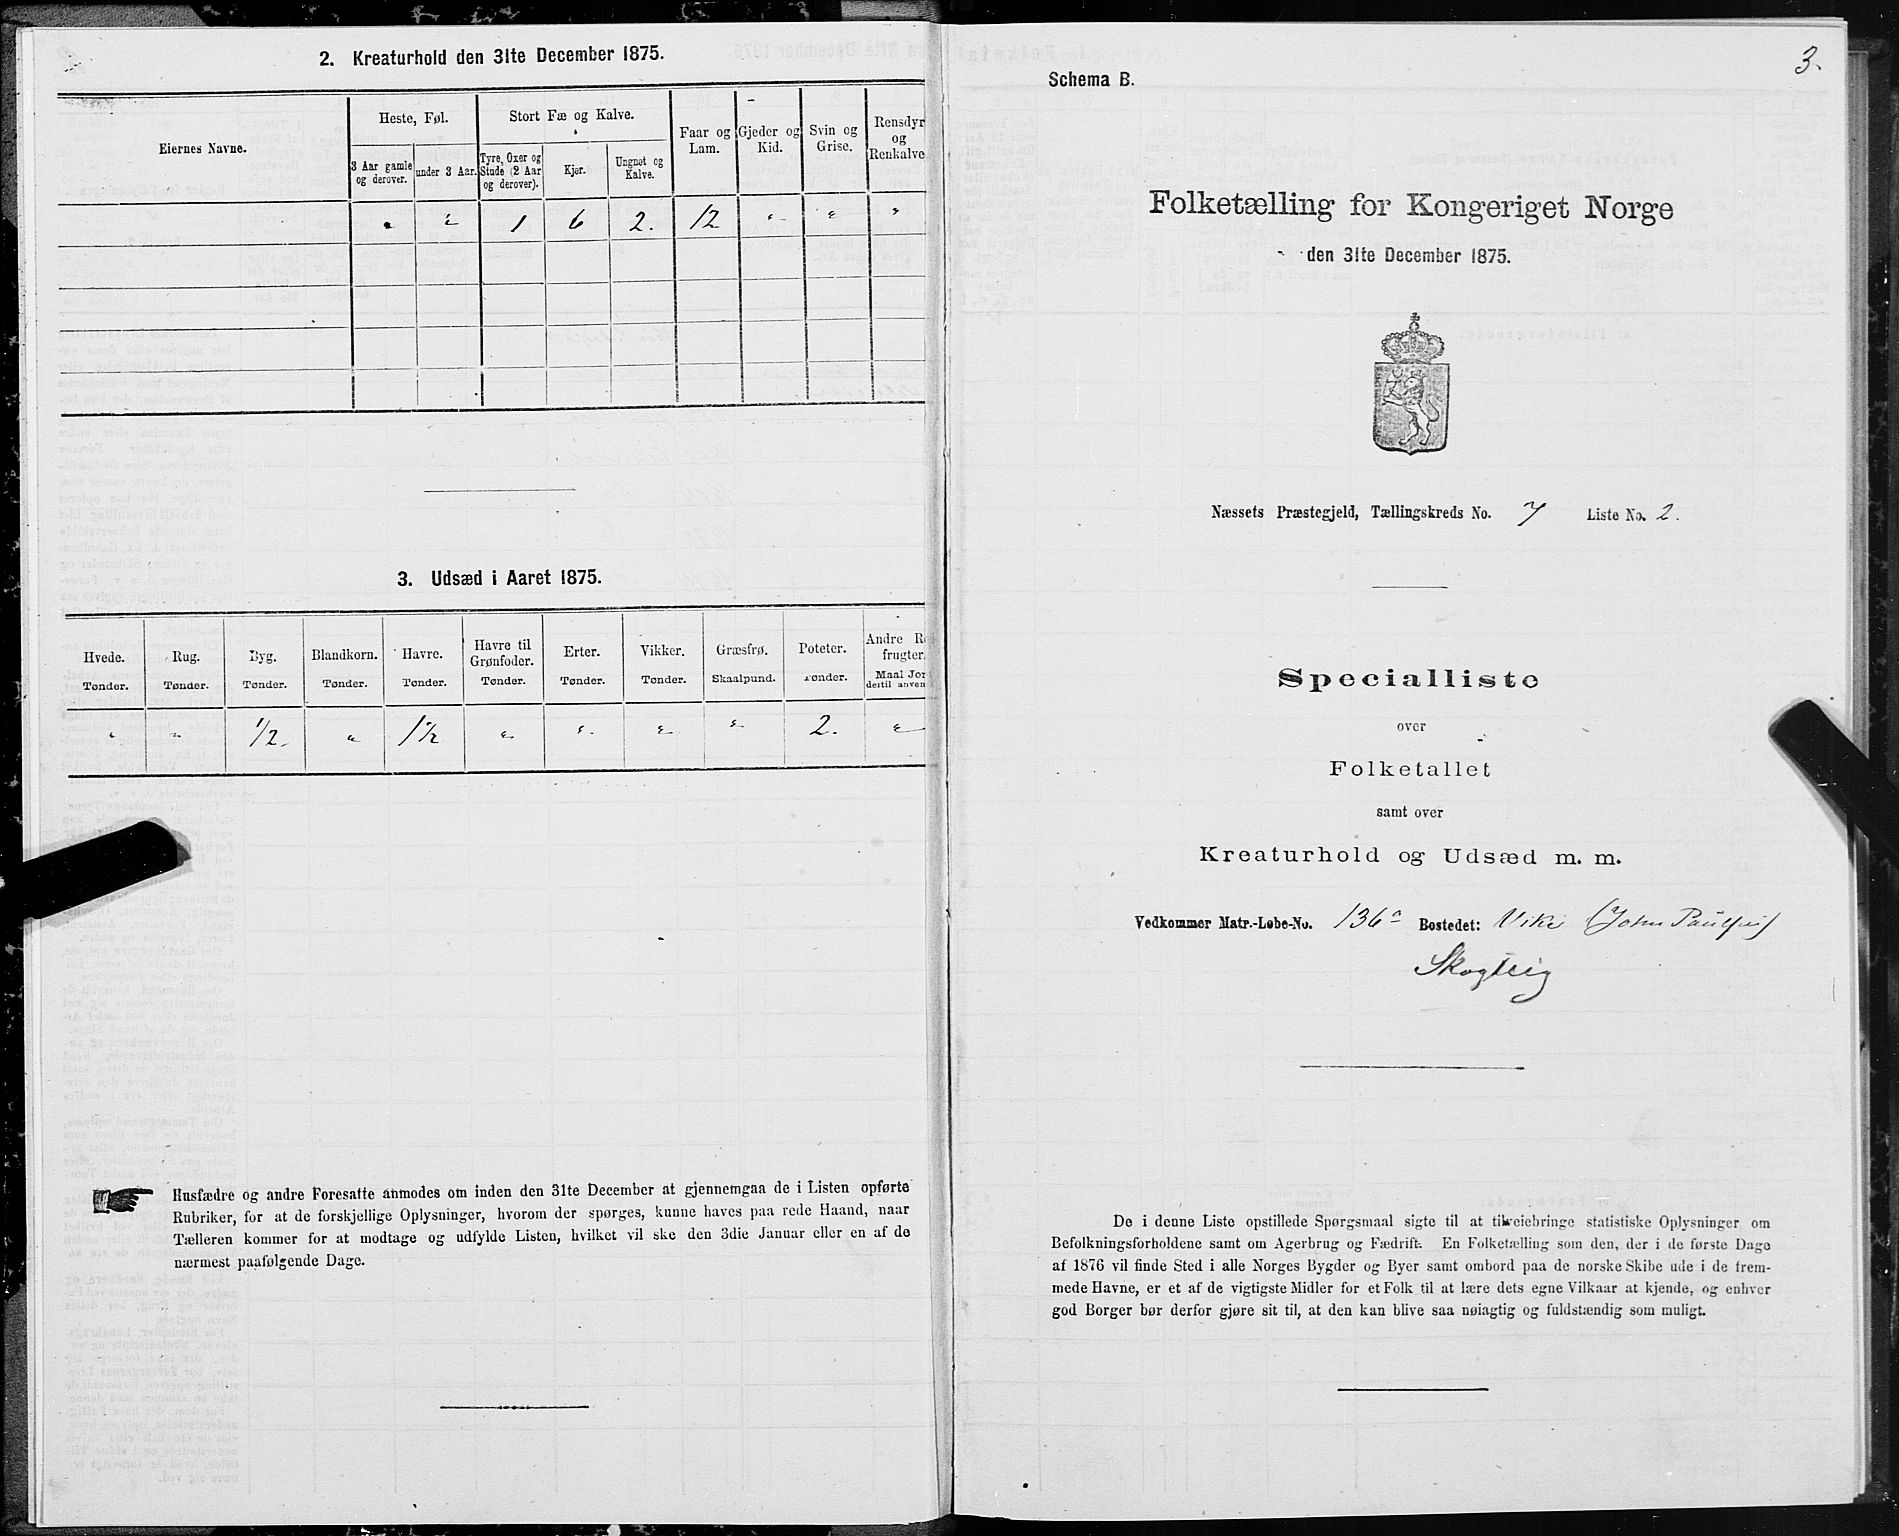 2. Kreaturhold den 31te December 1875.
Eiernes Navne.
Heste, Føl.
Stort Fæ og Kalve.
Faar og Lam.
Gjeder og Kid.
Svin og Grise.
Rensdyr og Renkalve
3 Aar gamle og derover.
under 3 Aar.
Tyre, Oxer og Stude (2 Aar og derover).
Kjør.
Ungnøt og Kalve.
" " 1 6 2. 12 " " "
3. Udsæd i Aaret 1875.
Hvede. Rug. Byg. Blandkorn. Havre. Havre til Grønfoder. Erter. Vikker. Græsfrø. Poteter. Andre R frugter.
Tønder. Tønder. Tønder. Tønder. Tønder. Tønder. Tønder. Tønder. Skaalpund. Tønder. Maal Jor dertil anven
" " 1/2. " 1 1/2 " " " " 2. "
Husfædre og andre Foresatte anmodes om inden den 31te December at gjennemgaa de i Listen opførte
Rubriker, for at de forskjellige Oplysninger, hvorom der spørges, kunne haves paa rede Haand, naar
Tælleren kommer for at modtage og udfylde Listen, hvilket vil ske den 3die Januar eller en af de
nærmest paafølgende Dage.
3.
Schema B.
Folketælling for Kongeriget Norge
den 31te December 1875.
Næssets Præstegjeld, Tællingskreds No. 7 Liste No. 2.
Specialliste
over
Folketallet
samt over
Kreaturhold og Udsæd m. m.
Vedkommer Matr.-Løbe-No. 136a Bostedet: Vike (John Paulsen)
Skogteig
De i denne Liste opstillede Spørgsmaal sigte til at tilveiebringe statistiske Oplysninger om
Befolkningsforholdene samt om Agerbrug og Fædrift. En Folketælling som den, der i de første Dage
af 1876 vil finde Sted i alle Norges Bygder og Byer samt ombord paa de norske Skibe ude i de frem-
mede Havne, er et af de vigtigste Midler for et Folk til at lære dets egne Vilkaar at kjende, og enhver
god Borger bør derfor gjøre sit til, at den kan blive saa nøiagtig og fuldstændig som muligt.